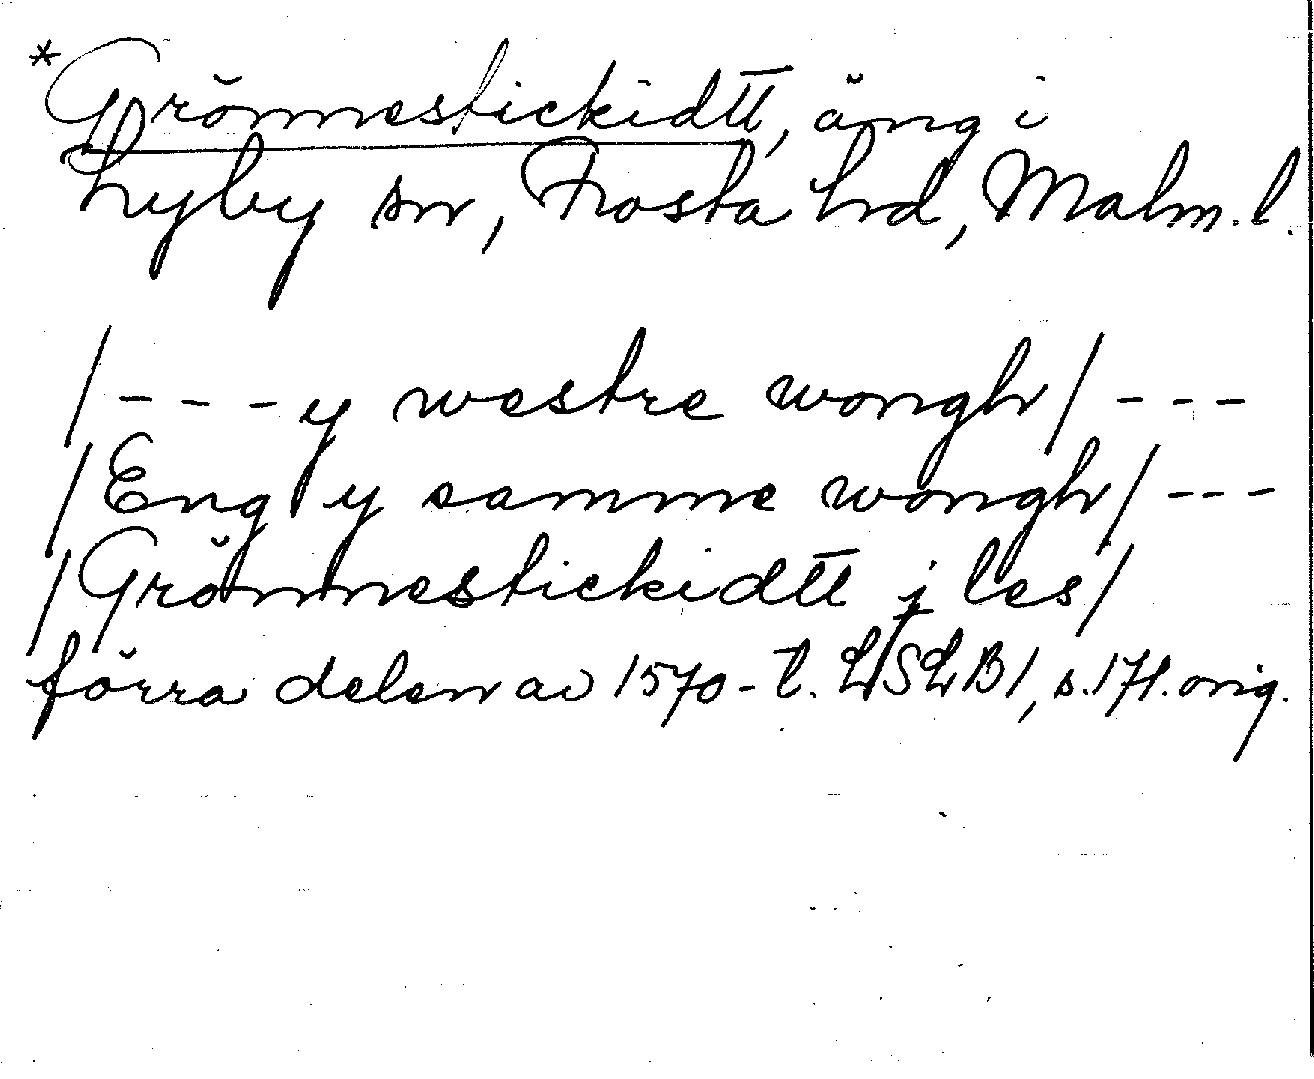 *Grönnestickidtt, äng i
Lyby sn, Frosta hd, Malm. l.
/---y westre wongh/---
/Eng y samme wongh/---
/Grönnestickidtt j les/
förra delen av 1570-t. LSLB1, s.171. orig.